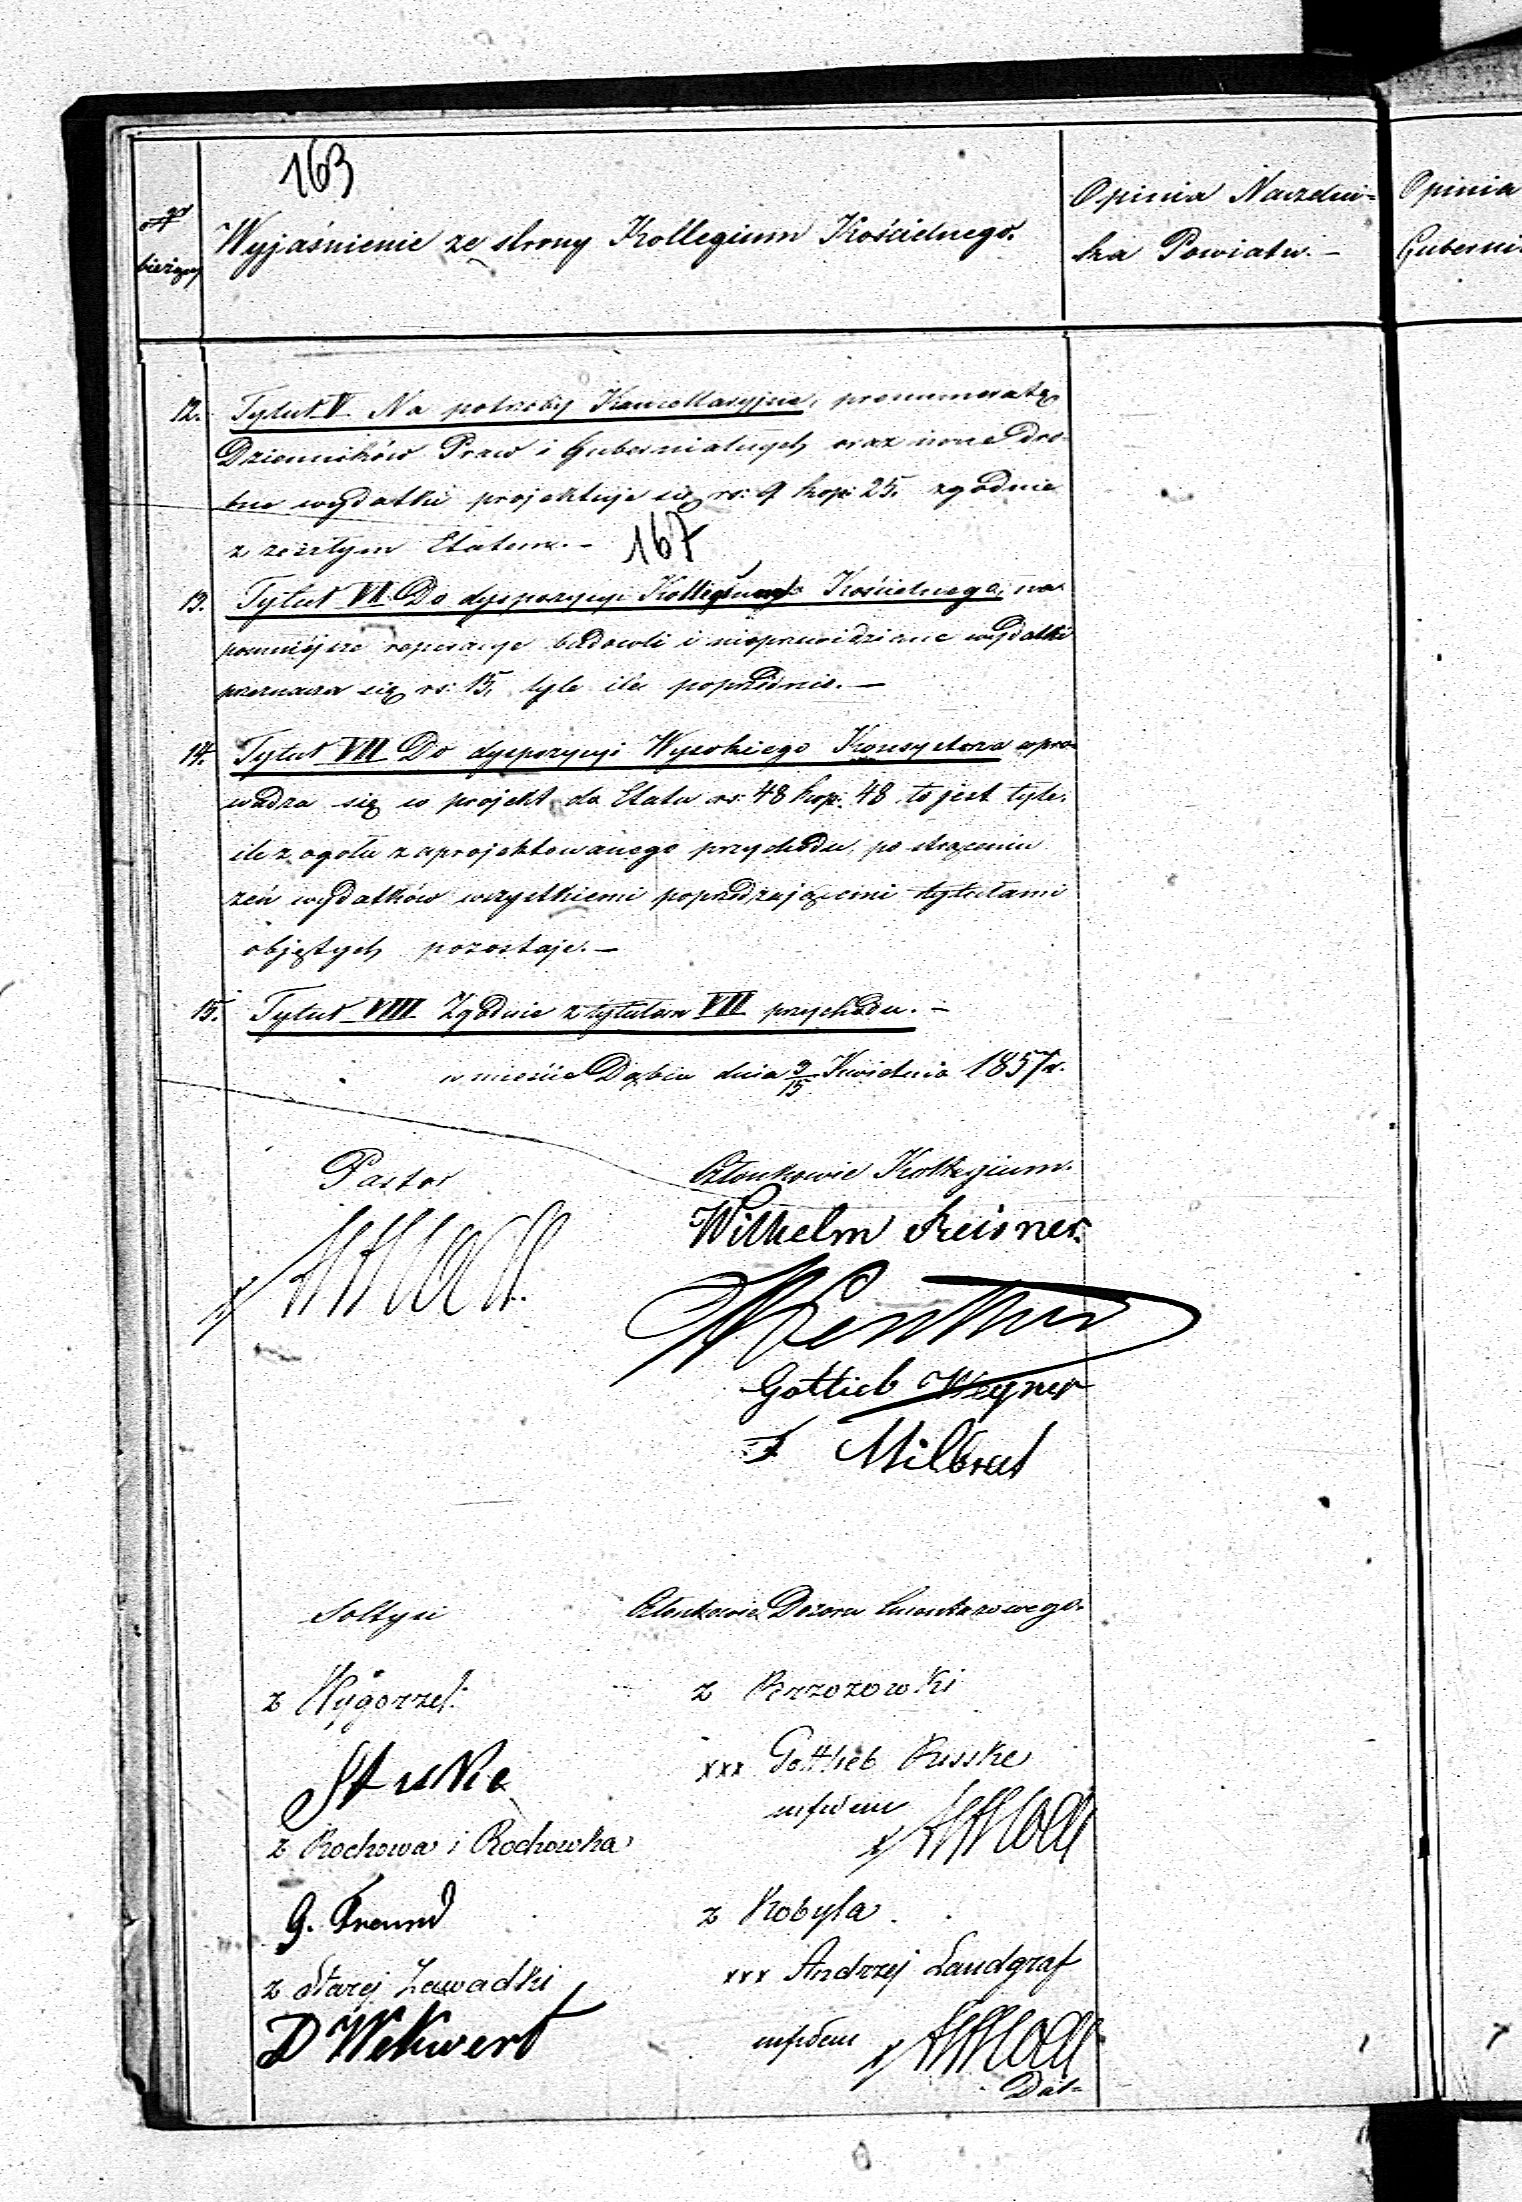 163
bieżący
Wyjaśnienie ze strony Kollegium Kościelnego.
Opinia Naczelni-
ka Powiatu. —
Opinia
Guberni
12. Tytuł V. Na potrzeby Kancellaryjne, prenumeratę
Dzienników Praw i Gubernialnych oraz inne dro-
bne wydatki projektuje się rs: 9 kop: 25. zgodnie
z zeszłym Etatem. —
167
13. Tytuł VI. Do dyspozycyi Kollegium Kościelnego, na
pomniejsze reperacye budowli i nieprzewidziane wydatki
przeznacza się rs: 15, tyle ile poprzednio. —
14. Tytuł VII Do dyspozycyi Wysokiego Konsystorza wpro-
wadza się w projekt do Etatu rs: 48 kop: 48. to jest tyle,
ile z ogółu zaprojektowanego przychodu, po strąceniu
zeń wydatków wszystkiemi poprzedzającemi tytułami
objętych pozostaje. —
15. Tytuł VIII Zgodnie z tytułem VII przychodu. —
w mieście Dąbiu dnia 3/15 Kwietnia 1857 r.
Pastor
Członkowie Kollegium.
Wilhelm Reisner
Gottlieb Wegner
F Milbrat
Sołtysi
Członkowie Dozoru Cmentarzowego.
z Wygorzel:
z Brzozowki
Stuke
xxx Gottlieb Russke
z Rochowa i Rochowka
G. Freund
z Kobyla
z Starej Zawadki
xxx Andrzej Landgraf
D Wekwert
Dał-